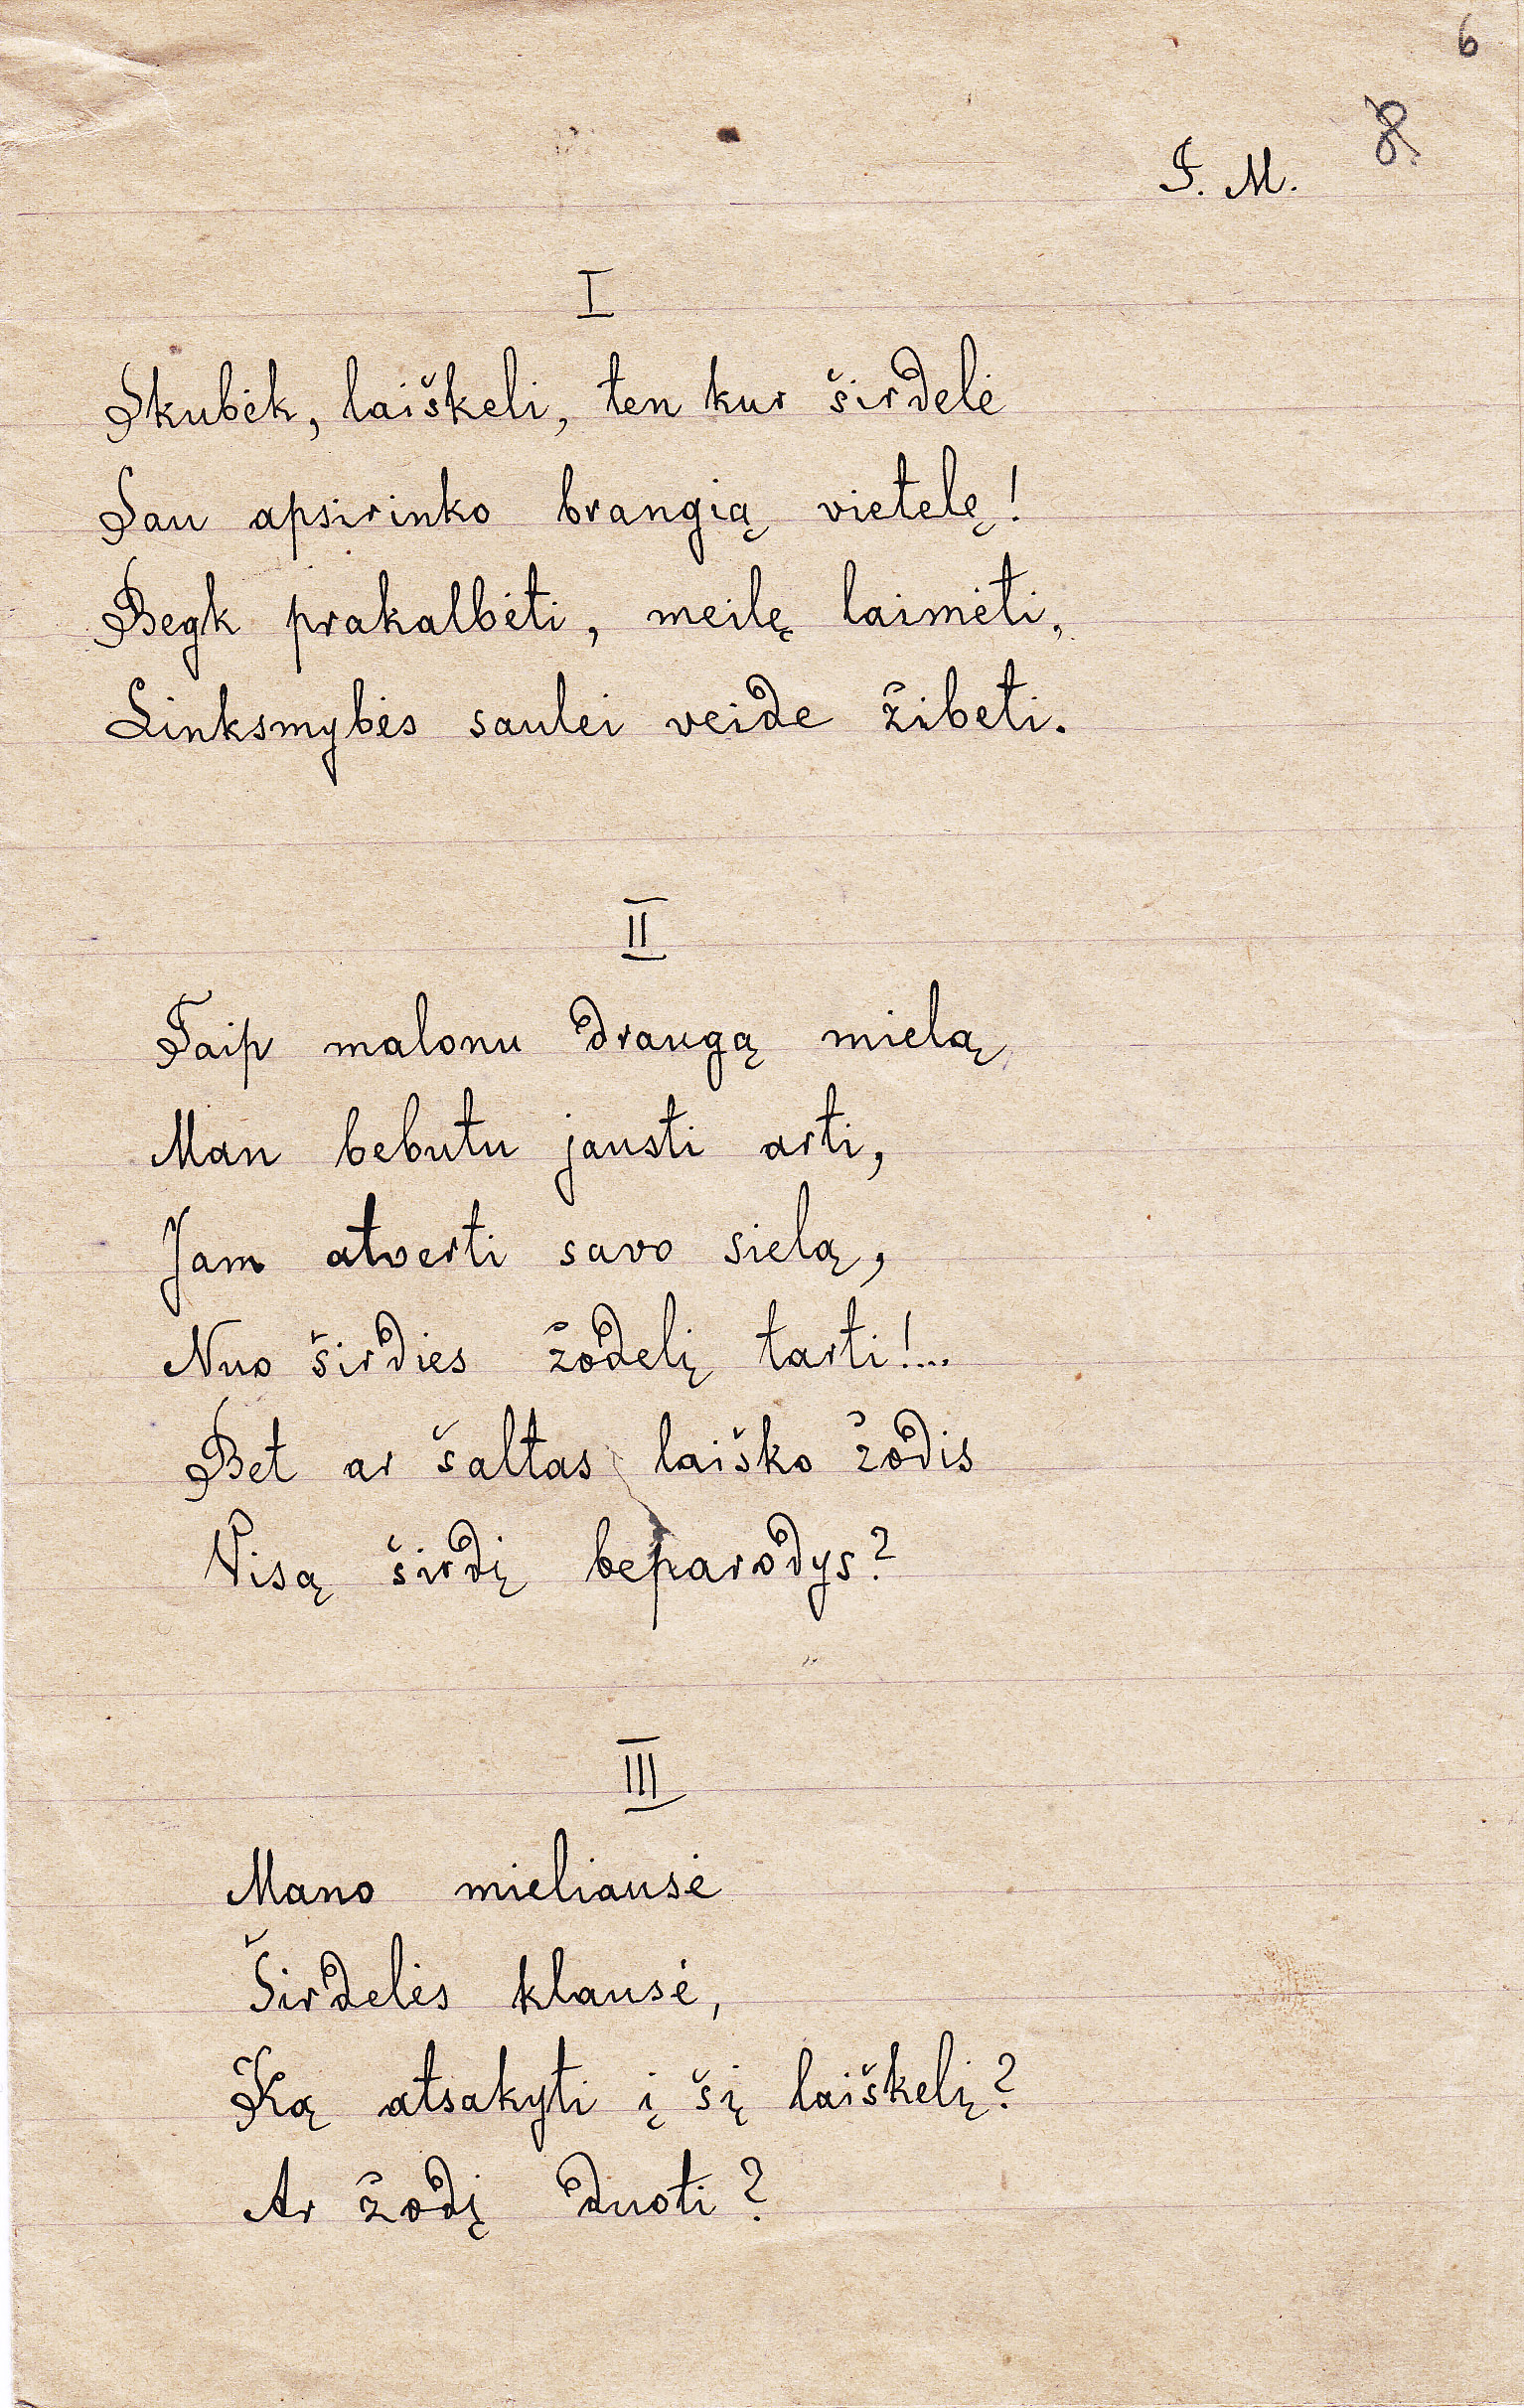 6
8.
J. M.
I
Skubėk, laiškeli, ten kur širdelė
Sau apsirinko brangią vietelę!
Begk prakalbėti, meilę laimėti,
Linksmybės saulei veide žibeti.
II
Taip malonu draugą mielą
Man bebutu jausti arti,
Jam atverti savo sielą,
Nuo širdies žodelį tarti!...
Bet ar šaltas laiško žodis
Visą širdį beparodys?
III
Mano mieliausė
Širdelės klausė,
Ką atsakyti į šį laiškelį?
Ar žodį duoti?